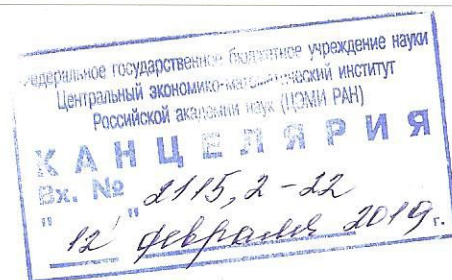 Федеральное государственное бюджетное учреждение науки
Центральный экономико-математический институт
Российской академии наук (ЦЭМИ РАН)
КАНЦЕЛЯРИЯ
Вх. № 2115,2-22
"12" февраля 2019г.